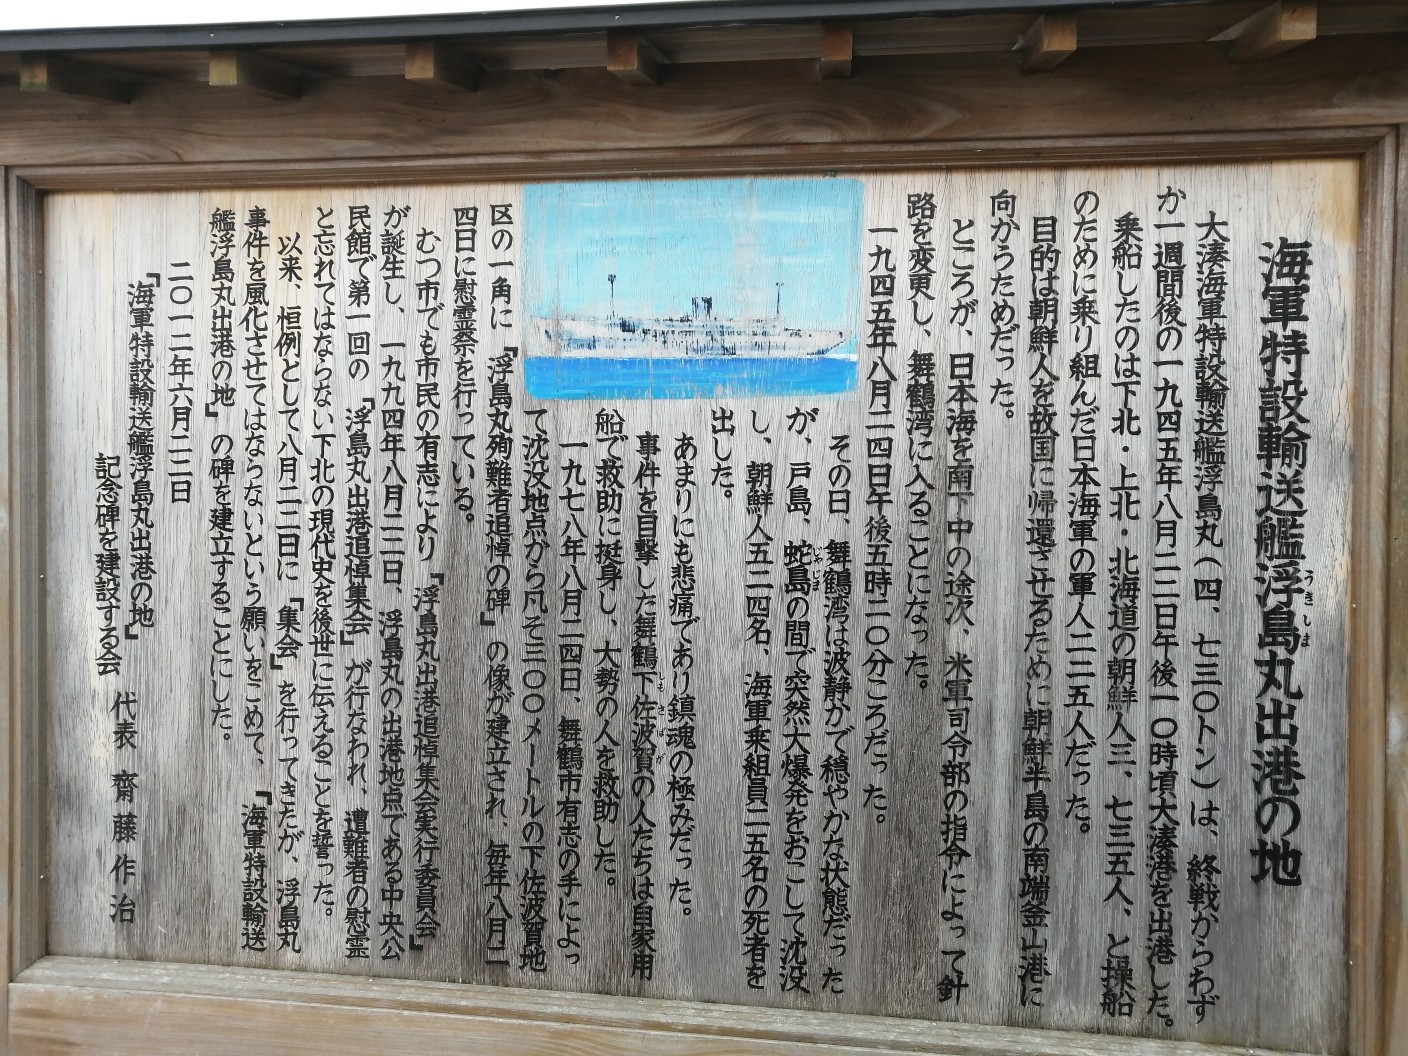 海軍特設輸送艦浮島丸出港の地
うきしま
大湊海軍特設輸送艦浮島丸(四、七三〇トン)は、終戦からわず
か一週間後の一九四五年八月二二日午後一〇時頃大湊港を出港した。
乗船したのは下北・上北・北海道の朝鮮人三、七三五人、と操船
のために乗り組んだ日本海軍の軍人二二五人だった。
目的は朝鮮人を故国に帰還させるために朝鮮半島の南端釜山港に
向かうためだった。
ところが、日本海を南下中の途次、米軍司令部の指令によって針
路を変更し、舞鶴湾に入ることになった。
一九四五年八月二四日午後五時二〇分ころだった。
その日、舞鶴湾は波静かで穏やかな状態だった
が、戸島、蛇島の間で突然大爆発をおこして沈没
じゃじま
し、朝鮮人五二四名、海軍乗組員二五名の死者を
出した。
あまりにも悲痛であり鎮魂の極みだった。
事件を目撃した舞鶴下佐波賀の人たちは自家用
しもさばが
船で救助に挺身し、大勢の人を救助した。
一九七八年八月二四日、舞鶴市有志の手によっ
て沈没地点から凡そ三〇〇メートルの下佐波賀地
区の一角に『浮島丸殉難者追悼の碑』の像が建立され、毎年八月二
四日に慰霊祭を行っている。
むつ市でも市民の有志により『浮島丸出港追悼集会実行委員会』
が誕生し、一九九四年八月二二日、浮島丸の出港地点である中央公
民館で第一回の『浮島丸出港追悼集会』が行なわれ、遭難者の慰霊
と忘れてはならない下北の現代史を後世に伝えることを誓った。
以来、恒例として八月二二日に『集会』を行ってきたが、浮島丸
事件を風化させてはならないという願いをこめて、『海軍特設輸送
艦浮島丸出港の地』の碑を建立することにした。
二〇一二年六月二二日
『海軍特設輸送艦浮島丸出港の地』
記念碑を建設する会
代表 齋藤作治